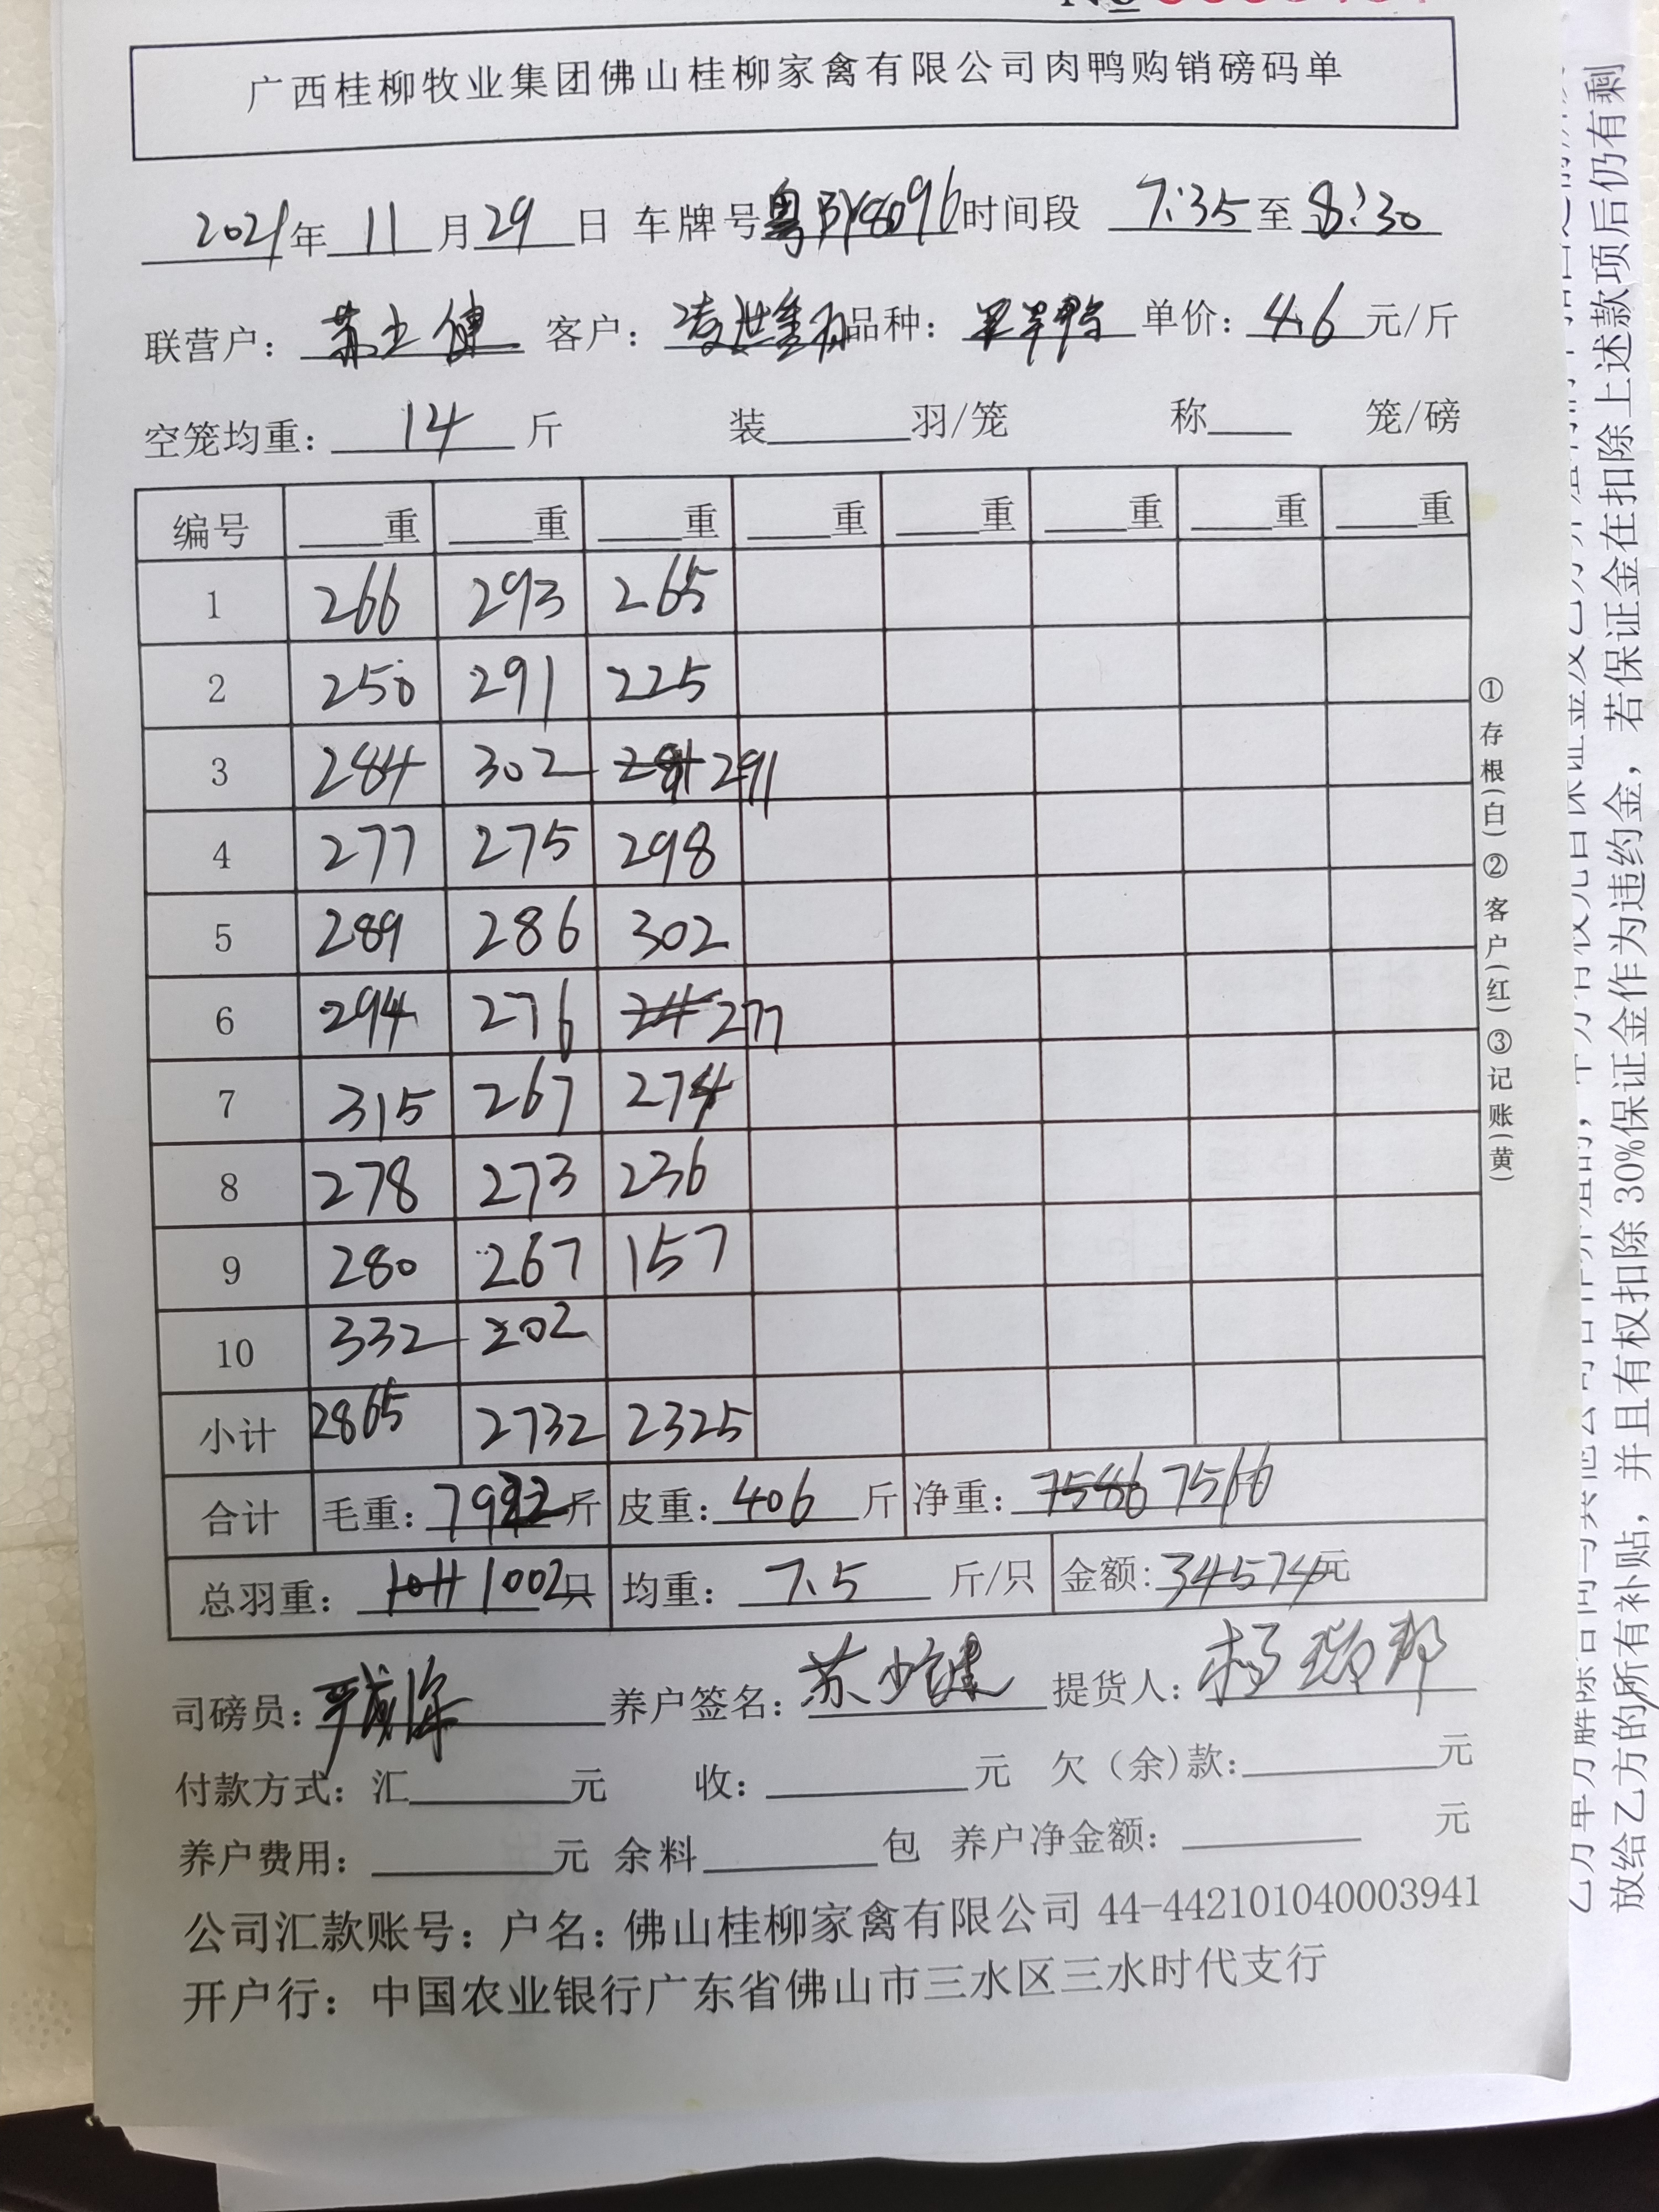 广西桂柳牧业集团佛山桂柳家禽有限公司肉鸭购销磅码单
2021年 11 月 29 日 车牌号 粤 8096 时间段 7:35 至 8:30
联营户: 苏 健 客户: 凌 品种: 鸭 单价: 4.6 元/斤
空笼均重: 14 斤 装 羽/笼 称 笼/磅
编号 重 重 重 重 重 重 重 重
1 266 293 265
2 250 291 225
3 284 302 291
4 277 275 298
5 289 286 302
6 294 276 277
7 315 267 274
8 278 273 236
9 280 267 157
10 332 202
小计 2865 2732 2325
合计 毛重: 斤 皮重: 406 斤 净重: 7586 7516
总羽重: 1011 1002只 均重: 7.5 斤/只 金额: 34574元
司磅员: 养户签名: 苏少健 提货人: 杨 邦
付款方式: 汇 元 收: 元 欠(余)款: 元
养户费用: 元 余料 包 养户净金额: 元
公司汇款账号: 户名: 佛山桂柳家禽有限公司 44-442101040003941
开户行: 中国农业银行广东省佛山市三水区三水时代支行
①存根(白)②客户(红)③记账(黄)
若保证金在扣除上述款项后仍有剩
并且有权扣除 30%保证金作为违约金,
放给乙方的所有补贴,